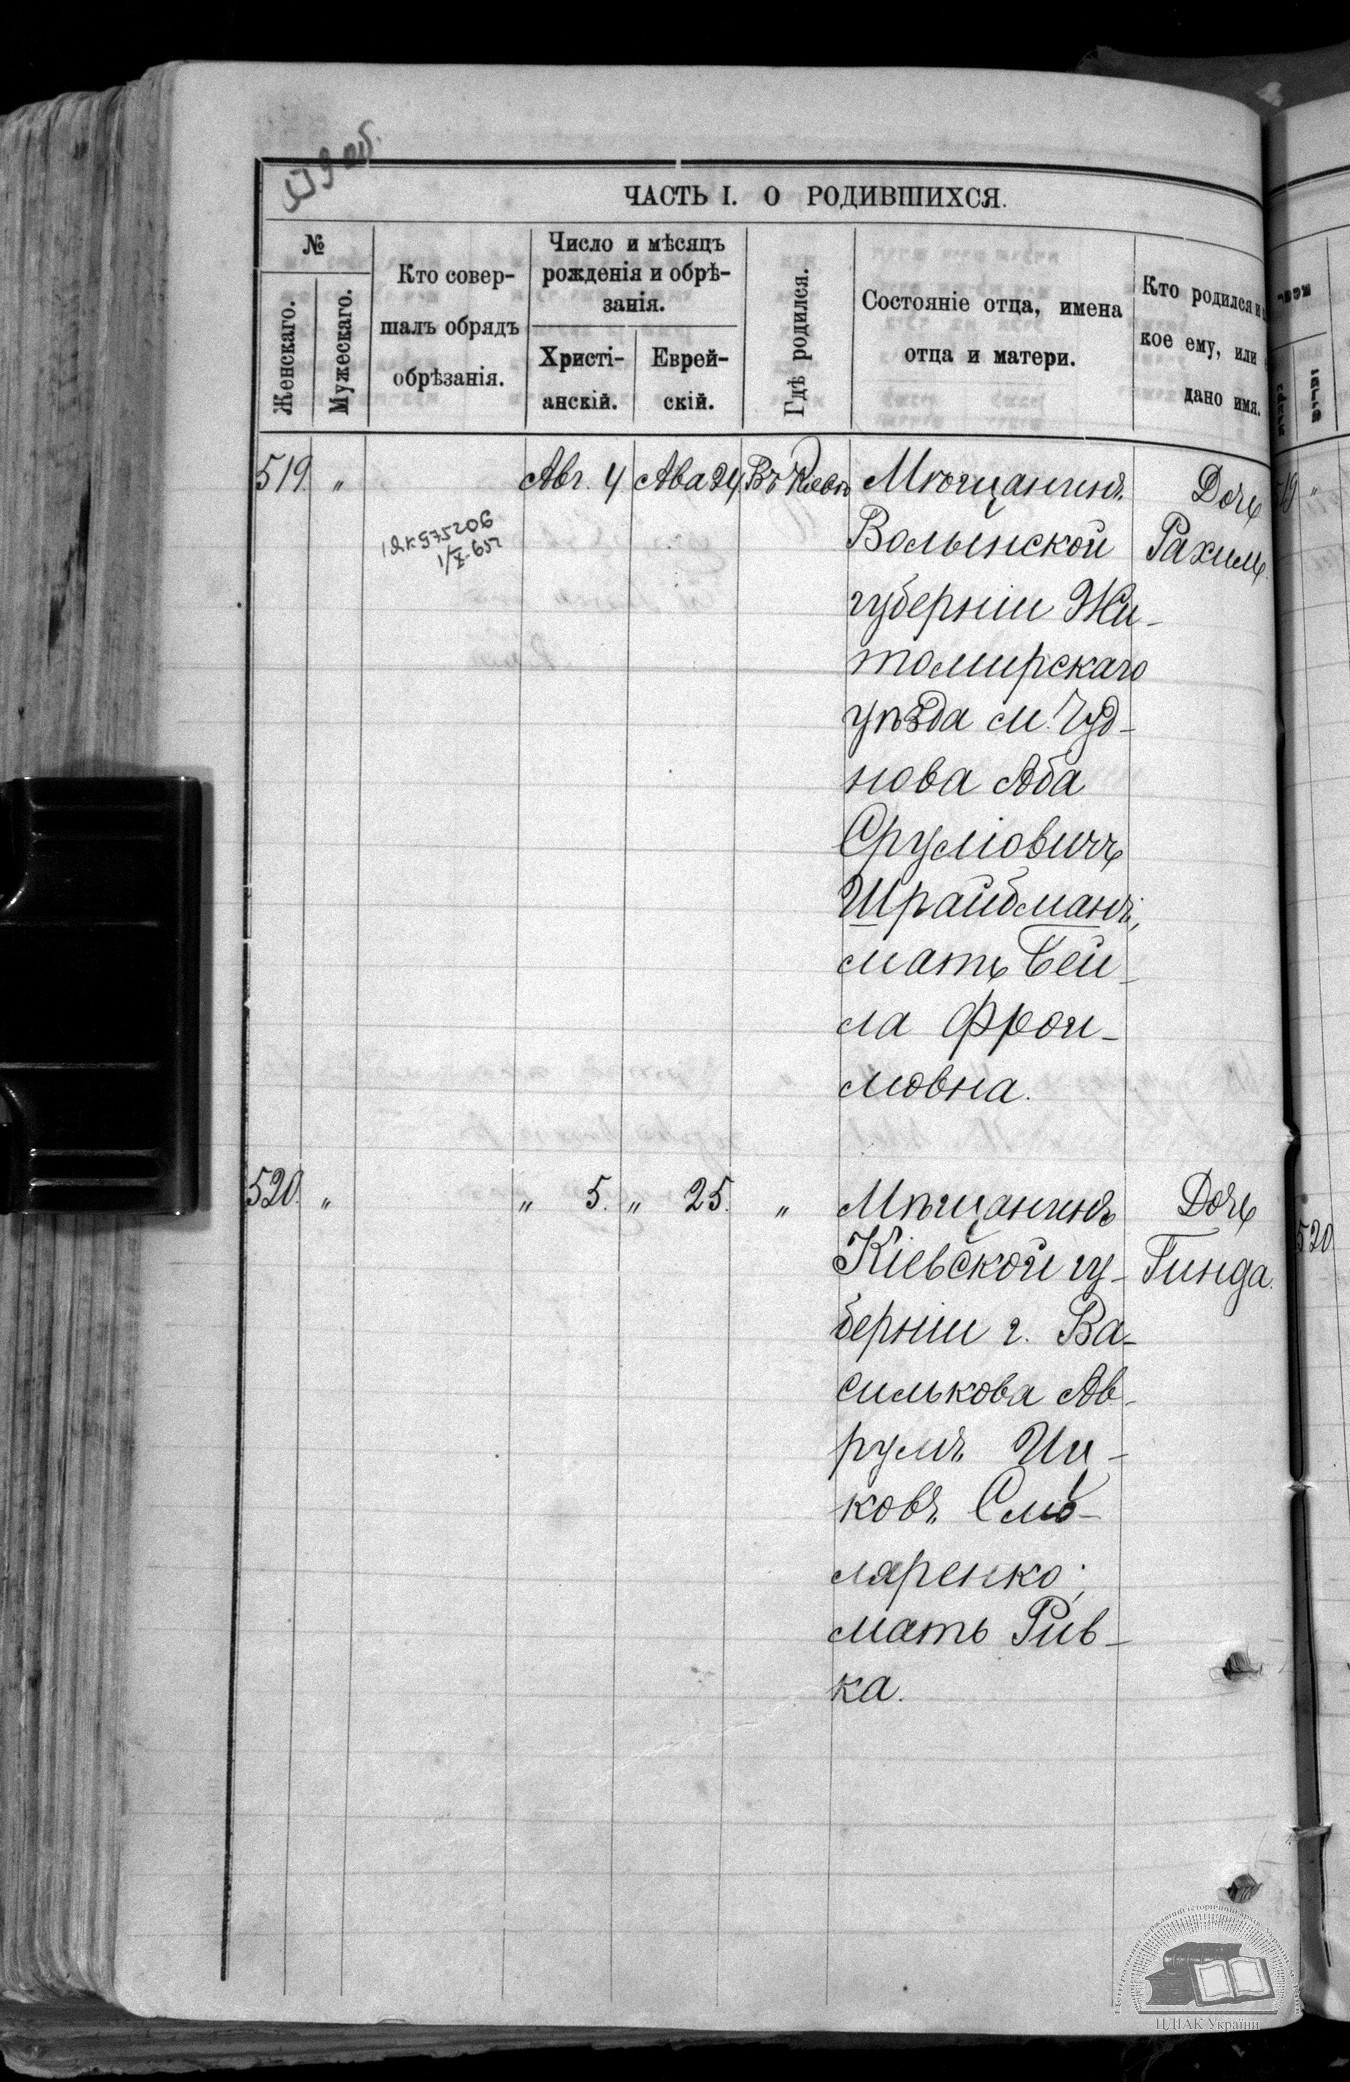 ЧАСТЬ I. О РОДИВШИХСЯ.
№
Женскаго.
Мужескаго.
Кто совер-
шалъ обрядъ
обрѣзанія.
Число и мѣсяцъ
рожденія и обрѣ-
занія.
Христі-
анскій.
Еврей-
скій.
Гдѣ родился.
Состояніе отца, имена
отца и матери.
Кто родился и
кое ему, или
дано имя.
519. " Авг. 4 Ава 24 Въ Кіевѣ Мѣщанинъ Дочь
Волынской Рахиль.
губерніи Жи-
томирскаго
уѣзда м. Чуд-
нова Аба
Сруліовичъ
Шрайбманъ,
мать Бей-
ла Фрои-
мовна.
1/X-65г
520. " " 5. " 25. " Мѣщанинъ Дочь
Кіевской гу- Гинда.
берніи г. Ва-
силькова Ав-
румъ Иц-
ковъ Смо-
ляренко;
мать Рив-
ка.
519 "
520
ЦДІАК України